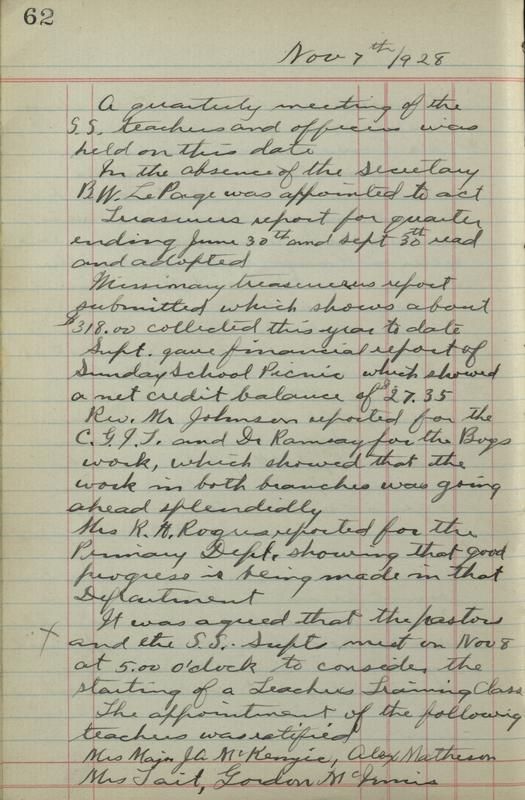 62
Nov 7th/1928
A quarterly meeting of the
S.S. teachers and officers was
held on this date
In the absence of the Secretary
B.W. LePage was appointed to act
Treasurers report for quarter
ending June 30th and Sept 30th read
and adopted
Missionary treasurers report
submitted which shows about
$318.00 collected this year to date
Supt. gave financial report of
Sunday School Picnic which showed
a net credit balance of $27.35
Rev. Mr Johnson reported for the
C.G.I.T. and Dr Ramsay for the Boys
work, which showed that the
work in both branches was going
ahead splendidly
Mrs R.H. Rogers reported for the
Primary Dept, showing that good
progress is being made in that
Department
It was agreed that the pastors
x and the S.S. Supts meet on Nov 8
at 5.00 o'clock to consider the
starting of a Teachers Training Class
The appointment of the following
teachers was ratified
Mrs Major J.A. McKenzie, Alex Matheson
Mrs Tait, Gordon McInnis